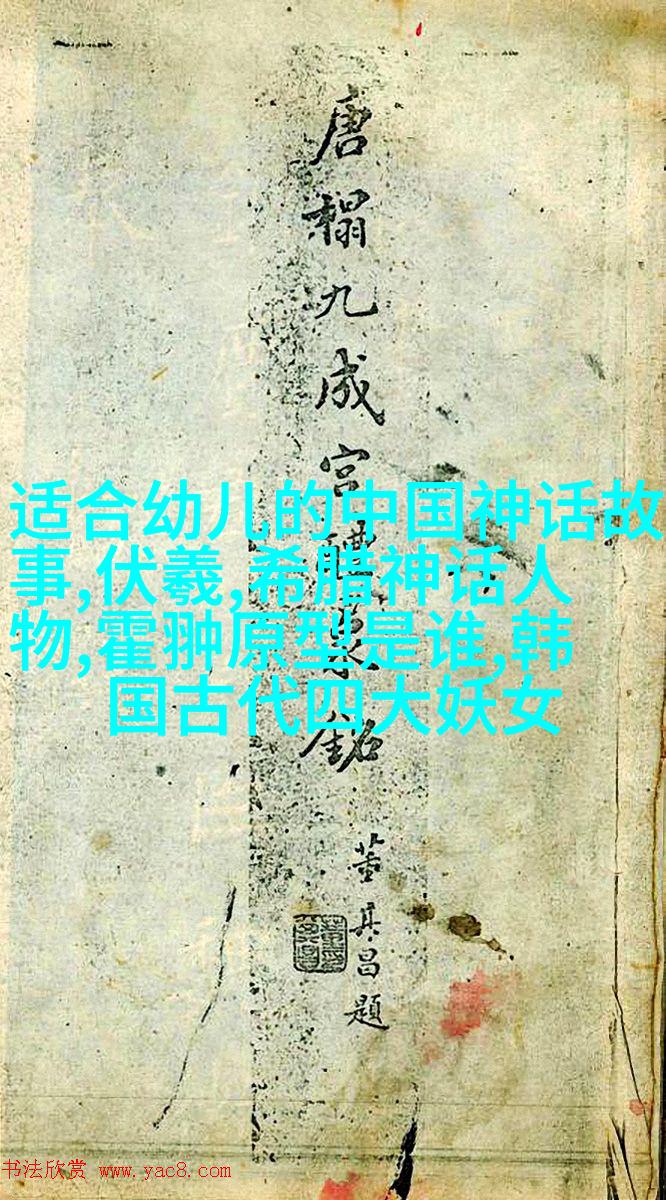 唐榻九成宫醴泉銘
董其昌題
适合幼儿的中国神话故
事,伏羲,希腊神话人
物,霍翀原型是谁,韩
国古代四大妖女
书法欣赏 www.yac8.com